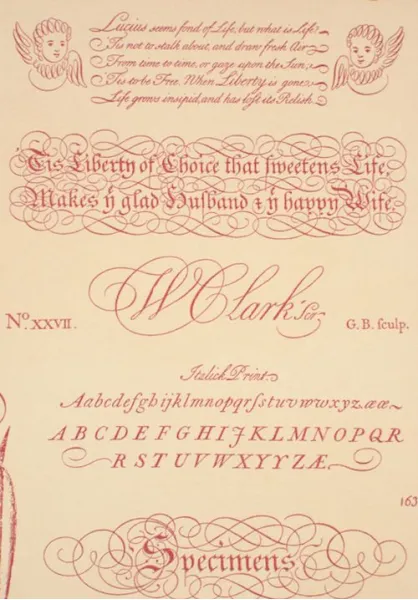 Lucius seems fond of Life, but what is Life?
'Tis not to stalk about, and draw fresh Air
From time to time, or gaze upon the Sun;
'Tis to be Free. When Liberty is gone,
Life grows insipid, and has lost its Relish.
'Tis Liberty of Choice that ſweetens Life,
Makes yͤ glad Huſband & yͤ happy Wife.
W Clark Scr.
No. XXVII.
G. B. ſculp.
Italick Print.
Aabcdefghijklmnopqrſstuvwwxyz.ææ
ABCDEFGHIJKLMNOPQR
RSTUVWXYYZÆ.
163
Specimens